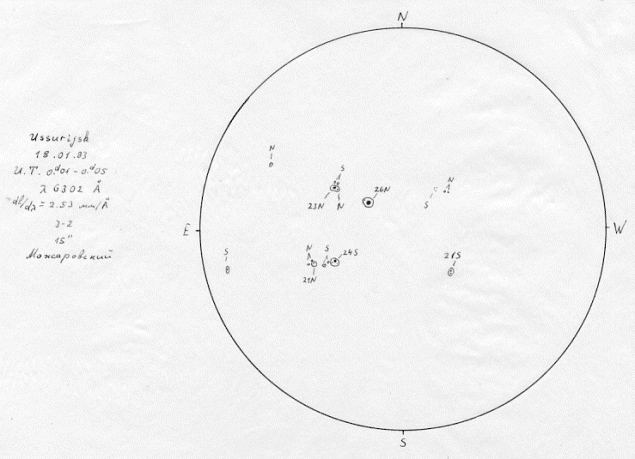 N
Ussurijsk
18.01.83
U.T. 0.ᵈ01 - 0.ᵈ05
λ 6302 Å
dl/dλ = 2.53 mm/Å
3-2
15"
Можаровский
N
S
23N
N
26N
N
S
E
W
S
N
S
24S
21N
21S
S